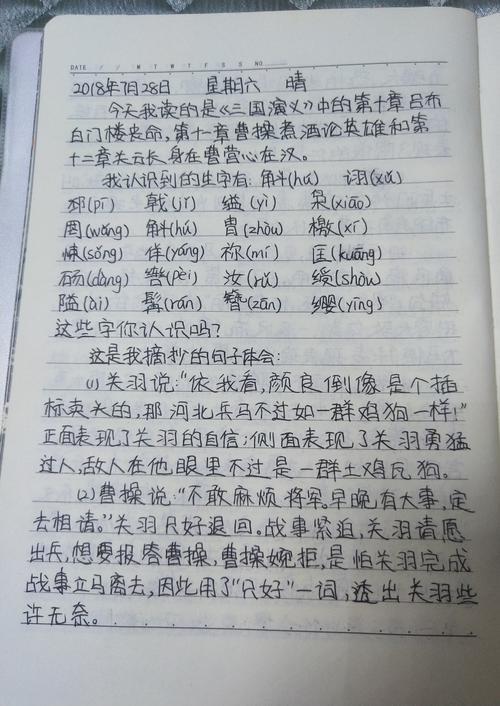 DATE / / M T W T F S S NO.
2018年7月28日 星期六 晴
今天我读的是《三国演义》中的第十章吕布
白门楼丧命,第十一章曹操煮酒论英雄和第
十二章关云长身在曹营心在汉。
我认识到的生字有:斛(hú) 诩(xǔ)
邳(pī) 戟(jǐ) 缢(yì) 枭(xiāo)
罔(wǎng) 斛(hú) 胄(zhòu) 檄(xí)
悚(sǒng) 佯(yáng) 祢(mí) 匡(kuāng)
砀(dàng) 辔(pèi) 汝(rǔ) 绶(shòu)
隘(ài) 髯(rán) 簪(zān) 缨(yīng)
这些字你认识吗?
这是我摘抄的句子体会:
(1)关羽说:“依我看,颜良倒像是个插
标卖头的,那河北兵马不过如一群鸡狗一样!”
正面表现了关羽的自信;侧面表现了关羽勇猛
过人,敌人在他眼里不过是一群土鸡瓦狗。
(2)曹操说:“不敢麻烦将军。早晚有大事,定
去相请。”关羽只好退回。战事紧迫,关羽请愿
出兵,想要报答曹操,曹操婉拒,是怕关羽完成
战事立马离去,因此用了“只好”一词,透出关羽些
许无奈。